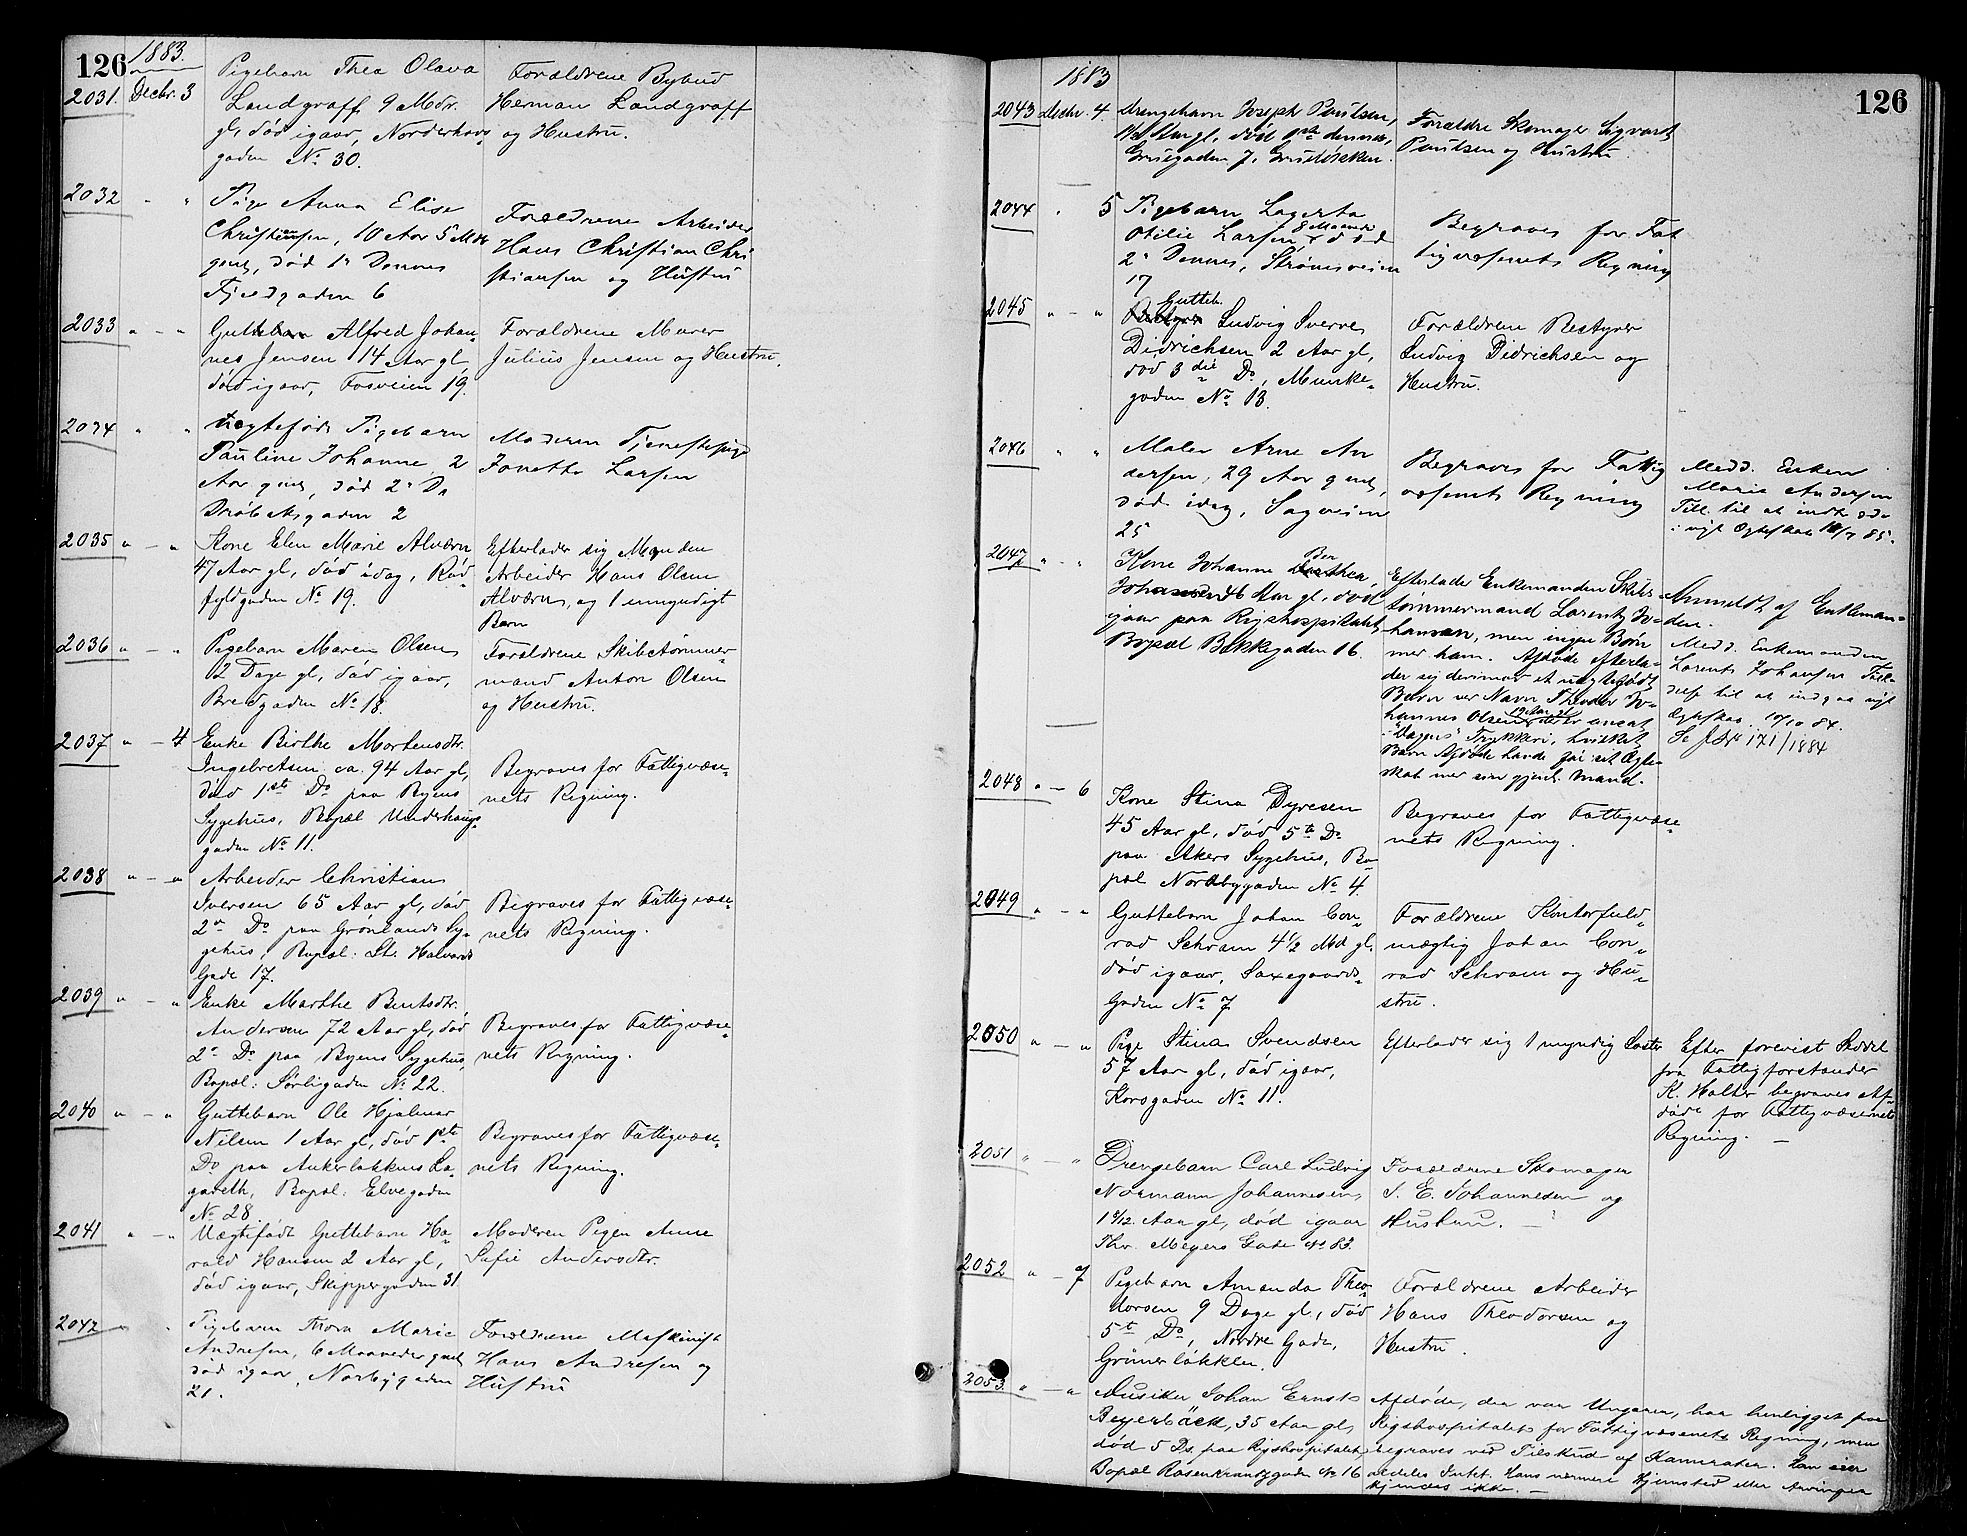 126
1883.
2031. Decbr. 3
Pigebarn Thea Olava
Landgraff 9 Mdr.
gl, død igaar, Norderhovs
gaden No 30.
Forældrene Bybud
Herman Landgraff
og Hustru.
2032 " "
Pige Anna Elise
Christiansen, 10 Aar 5 Mdr
gml, død 1ste Dennes
6
Forældrene Arbeider
Hans Christian Chri
stiansen og Hustru
2033 " - "
Guttebarn Alfred Johan-
nes Jensen 14 Aar gl,
død igaar, Fosveien 19.
Forældrene Murer
Julius Jensen og Hustru.
2034 " "
Uægtefødt Pigebarn
Pauline Johanne, 2
Aar gml, død 2n Ds
Drøbaksgaden 2
Moderen Tjenestepige
Janette Larsen
2035 " - "
Kone Elen Marie Alværn
47 Aar gl, død idag, Rød-
fyldgaden No 19.
Efterlader sig Manden
Arbeider Hans Olsen
Alværn, og 1 umyndigt
Barn
2036 " - "
Pigebarn Maren Olsen
12 Dage gl, død igaar,
Bredgaden No 18.
Forældrene Skibstømmer-
mand Anton Olsen
og Hustru.
2037 " - 4
Enke Birthe Mortensdtr.
Ingebretsen ca. 94 Aar gl,
død 1ste Ds paa Byens
Sygehus, Bopæl Underhaugs-
gaden No 11.
Begraves for Fattigvæse-
nets Regning.
2038 " - "
Arbeider Christian
Iversen 65 Aar gl, død
2n Ds paa Grønlands Sy-
gehus, Bopæl: St. Halvards
Gade 17.
Begraves for Fattigvæse-
nets Regning.
2039 " - "
Enke Marthe Bentsdtr.
Andersen 72 Aar gl, død
2n Ds paa Byens Sygehus,
Bopæl: Sørligaden No 22.
Begraves for Fattigvæse-
nets Regning.
2040 " - "
Guttebarn Ole Hjalmar
Nilsen 1 Aar gl, død 1ste
Ds paa Ankerløkkens La-
zareth, Bopæl: Elvegaden
No 28
Begraves for Fattigvæse-
nets Regning.
2041 " - "
Uægtefødt Guttebarn Ha-
rald Hansen 2 Aar gl,
død igaar, Skippergaden 31.
Moderen Pigen Anne
Sofie Andersdtr.
2042 " "
Pigebarn Thora Marie
Andresen, 6 Maaneder gml,
død igaar, Norbygaden
21.
Forældrene Maskinist
Hans Andresen og
Hustru
126
1883
2043 Decbr. 4.
Drengebarn Joseph Paulsen,
Aar gl, død dennes,
Gruegaden 7, Grueløkken.
Forældre Skomager Sigvard
Paulsen og Hustru.
2044 " 5
Pigebarn Lagerta
Otilie Larsen, 8 Maaned død
2n Dennes, Strømsveien
17
Begraves for Fat
tigvæsenets Regning
2045 " - "
Gutteb.
Ludvig Sverre
Didrichsen 2 Aar gl,
død 3die Ds, Munke-
gaden No 13.
Forældrene Bestyrer
Ludvig Didrichsen og
Hustru.
2046 " "
Maler Arne An
dersen, 29 Aar gml,
død idag, Sagveien
25
Begraves for Fattig
væsenets Regning
Medd. Enken
Marie Andersen
Till. til at indtræde
i nyt Ægteskab 85.
2047 " - "
Kone Johanne Berthea,
Johansen 46 Aar gl, død
igaar paa Rigshospitalet,
Bopæl Bakkegaden 16.
Efterlader Enkemanden Skibs-
tømmermand Lorentz Jo-
hansen, men ingen Børn
med ham. Afdøde efterla-
der sig derimod et uægtefødt
Barn ved Navn Theodor Jo-
hannes Olsen 19 Aar gl der er ansat
i "Dagens" Trykkeri, hvilket
Barn Afdøde havde før sit Ægte-
skab med sin gjenl. Mand.
Anmeldt af Enkeman-
den.
Medd. Enkemanden
Lorents Johansen Till-
delse til at indgaa nyt
Ægteskab. 10/10 84.
Se 171/1884
2048 " - 6
Kone Stina Dyresen
45 Aar gl, død 5te Ds
paa Akers Sygehus, Bo-
pæl Nordbygaden No 4.
Begraves for Fattigvæse-
nets Regning.
2049 " - "
Guttebarn Johan Con-
rad Schram 4 1/2 Md gl.
død igaar, Saxegaards-
gaden No 7
Forældrene Kontorfuld-
mægtig Johan Con-
rad Schram og Hu-
stru.
2050 " - "
Pige Stina Svendsen
57 Aar gl, død igaar,
Korsgaden No 11.
Efterlader sig 1 myndig Søster
Efter forevist Seddel
fra Fattigforstander
K. Halter begraves Af-
døde for Fattigvæsenets
Regning. -
2051 " - "
Drengebarn Carl Ludvig
Normann Johannesen,
1 8/12 Aar gl, død igaar
Thv. Meyers Gade No 83.
Forældrene Skomager
J. E. Johannesen og
Hustru. -
2052 " - 7
Pigebarn Amanda Theo-
dorsen 9 Dage gl, død
5te Ds, Nordre Gade,
Grünerløkken.
Forældrene Arbeider
Hans Theodorsen og
Hustru.
2053 " - "
Musiker Johan Ernst
Beyerböck, 35 Aar gl,
død 5 Ds. paa Rigshospitalet,
Bopæl Rosenkrantzgaden No 16
Afdøde, der var Ungarer, har henligget paa
Rigshospitalet for Fattigvæsenets Regning, men
begraves ved Tilskud af Kamerater. Han eier
aldeles Intet. Hans nærmere Hjemsted eller Arvinger
kjendes ikke. -